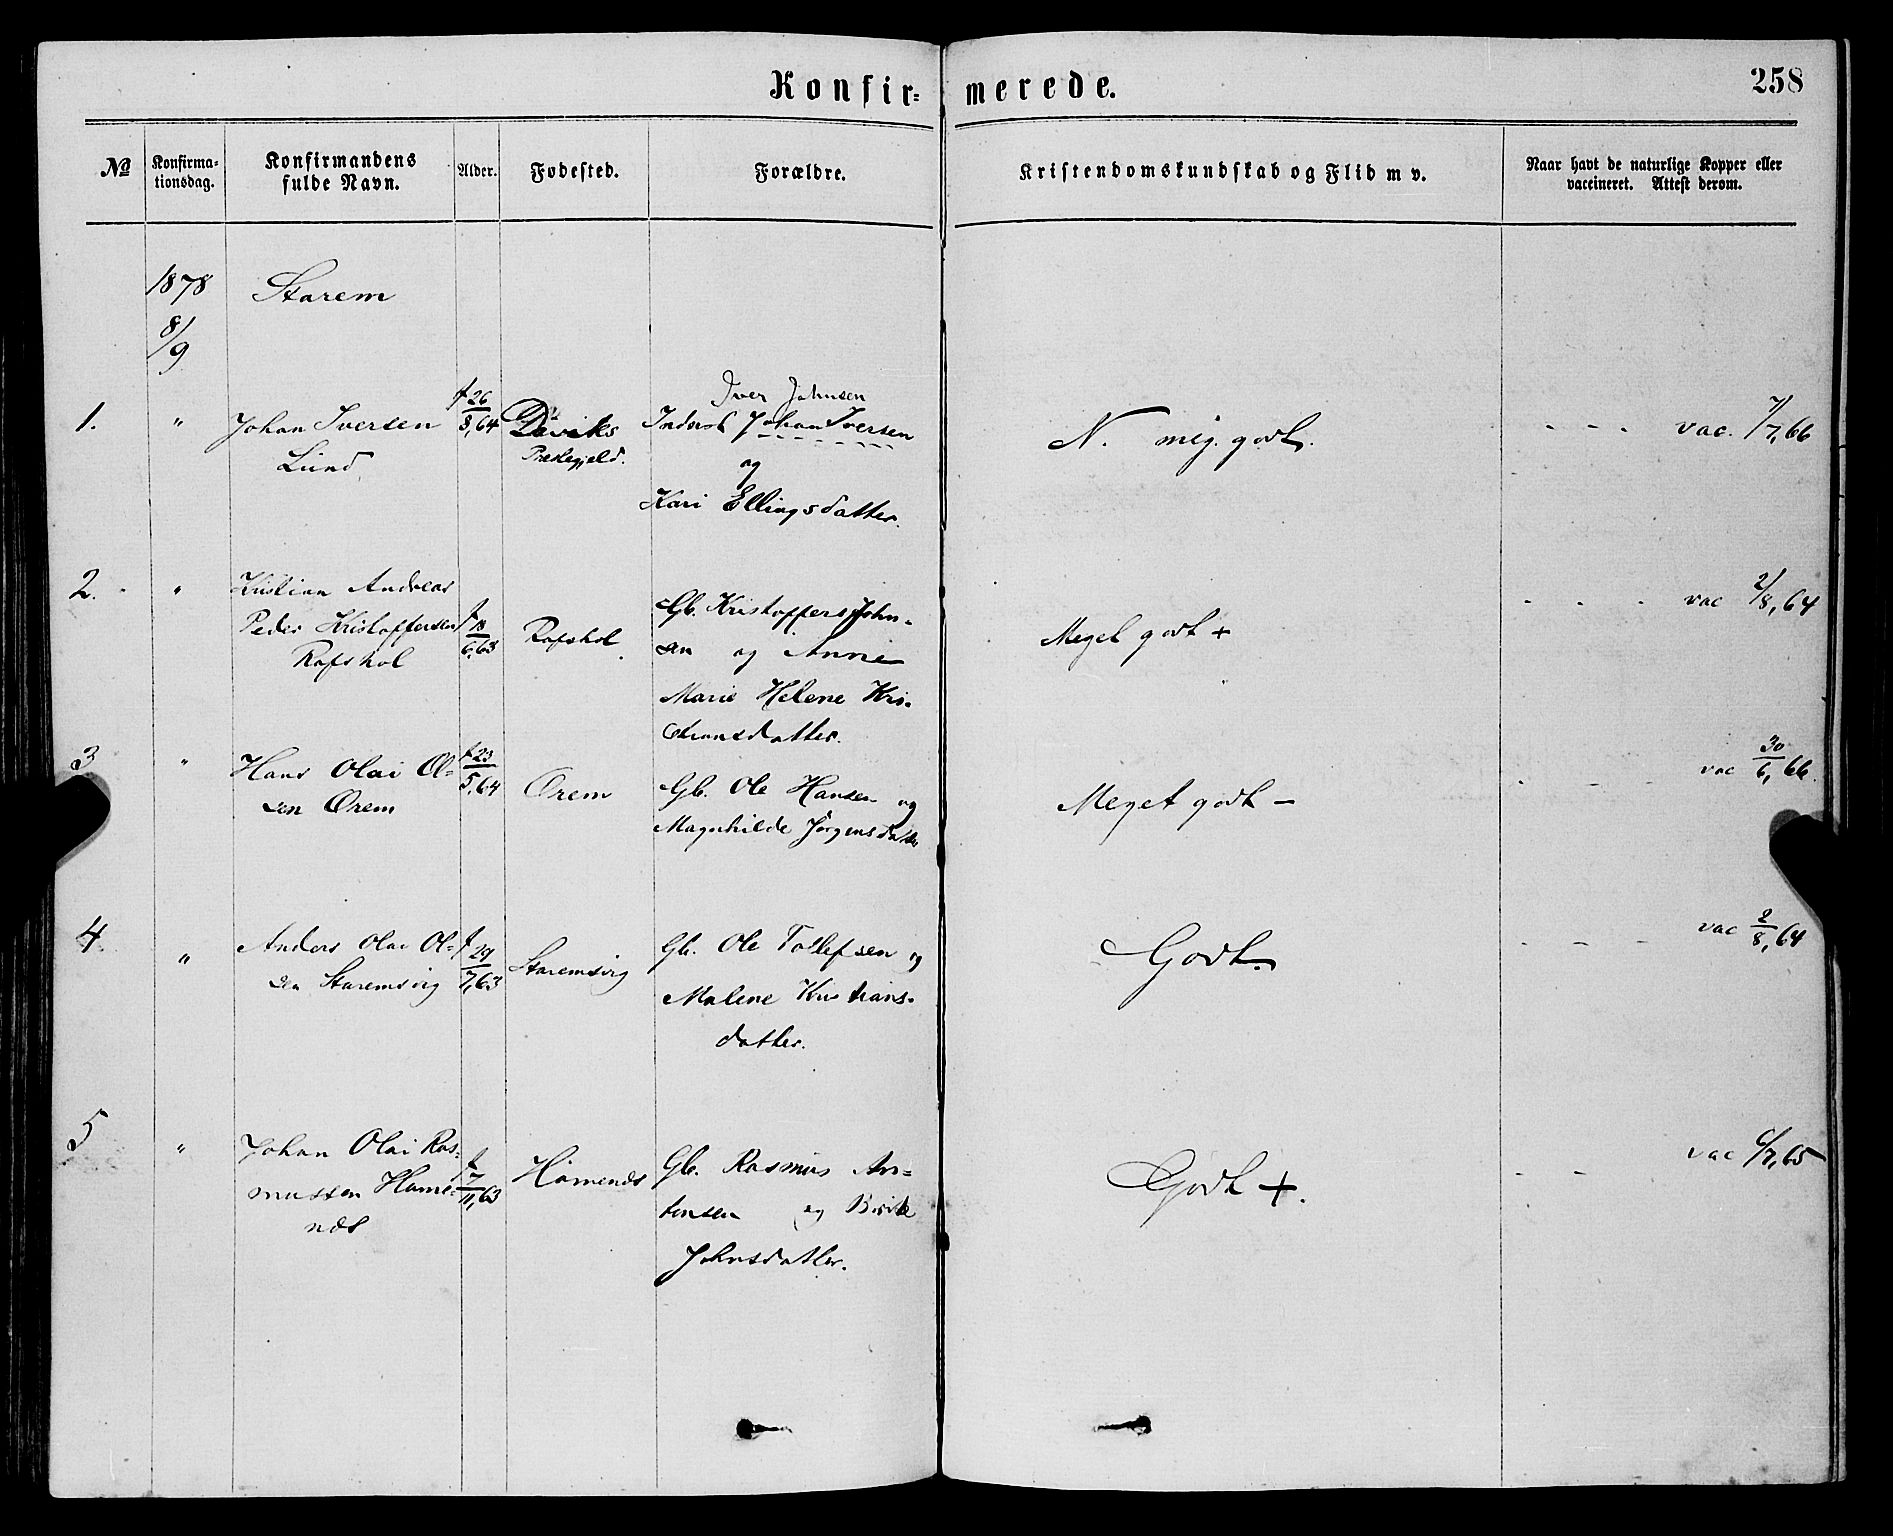 Konfirmerede.
258
№
Konfirma-
tionsdag.
Konfirmandens
fulde Navn.
Alder.
Fødested.
Forældre.
Kristendomskundskab og Flid m v.
Naar havt de naturlige Kopper eller
vaccineret. Attest derom.
1878 Starem
8/9
1. " Johan Iversen
Lund
f 26/8,64
Præstegjeld.
Iver Johnsen
Inderst Johan Iversen
og
Kari Ellingsdatter.
N. meg. godt.
- - - vac. 7/7,66
2. " Kristian Andreas
Peder Kristoffersen
Rafshol
f 18/6,63
Rafshol
Gb. Kristoffer John-
sen og Anne
Marie Helene Kri-
stiansdatter.
Meget godt +
- - - vac 2/8,64
3 " Hans Olai Ol-
sen Ørem
f 23/5,64
Ørem
Gb. Ole Hansen og
Magnhilde Jørgensdatter
Meget godt -
- - - vac 30/6,66.
4. " Anders Olai Ol-
sen Staremsvig
f 29/7,63
Staremsvig
Gb. Ole Tollefsen og
Malene Kristians-
datter.
Godt.
- - - vac 2/8,64
5 " Johan Olai Ras-
mussen Hame-
næs
f 7/11,63
Hamenæs
Gb. Rasmus An-
tonsen og
Johnsdatter.
Godt +.
- - vac 6/7,65